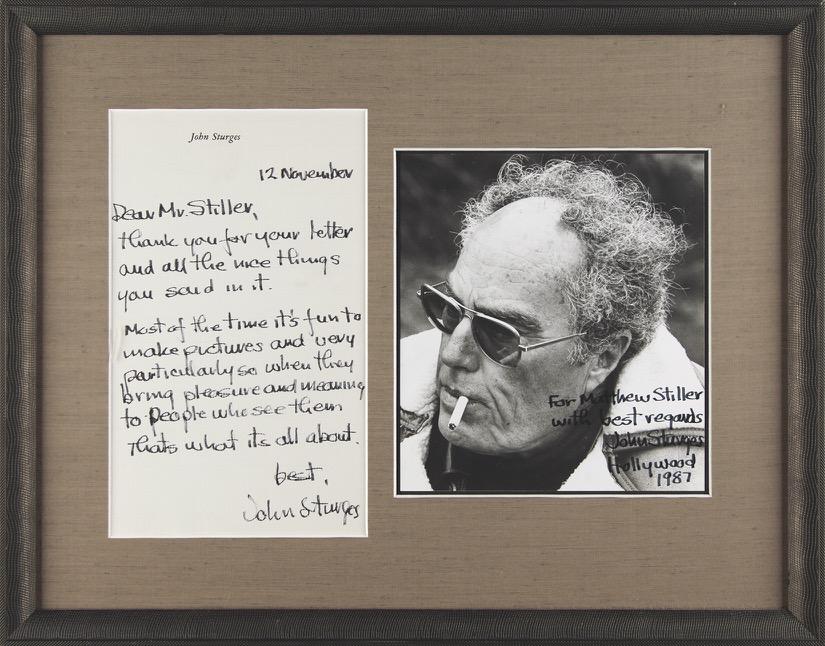 John Sturges
12 November
Dear Mr. Stiller,
thank you for your letter
and all the nice things
you said in it.
Most of the time it's fun to
make pictures and very
particularly so when they
bring pleasure and meaning
to people who see them
Thats what its all about.
best,
John Sturges
For Matthew Stiller
with best regards
John Sturges
Hollywood
1987